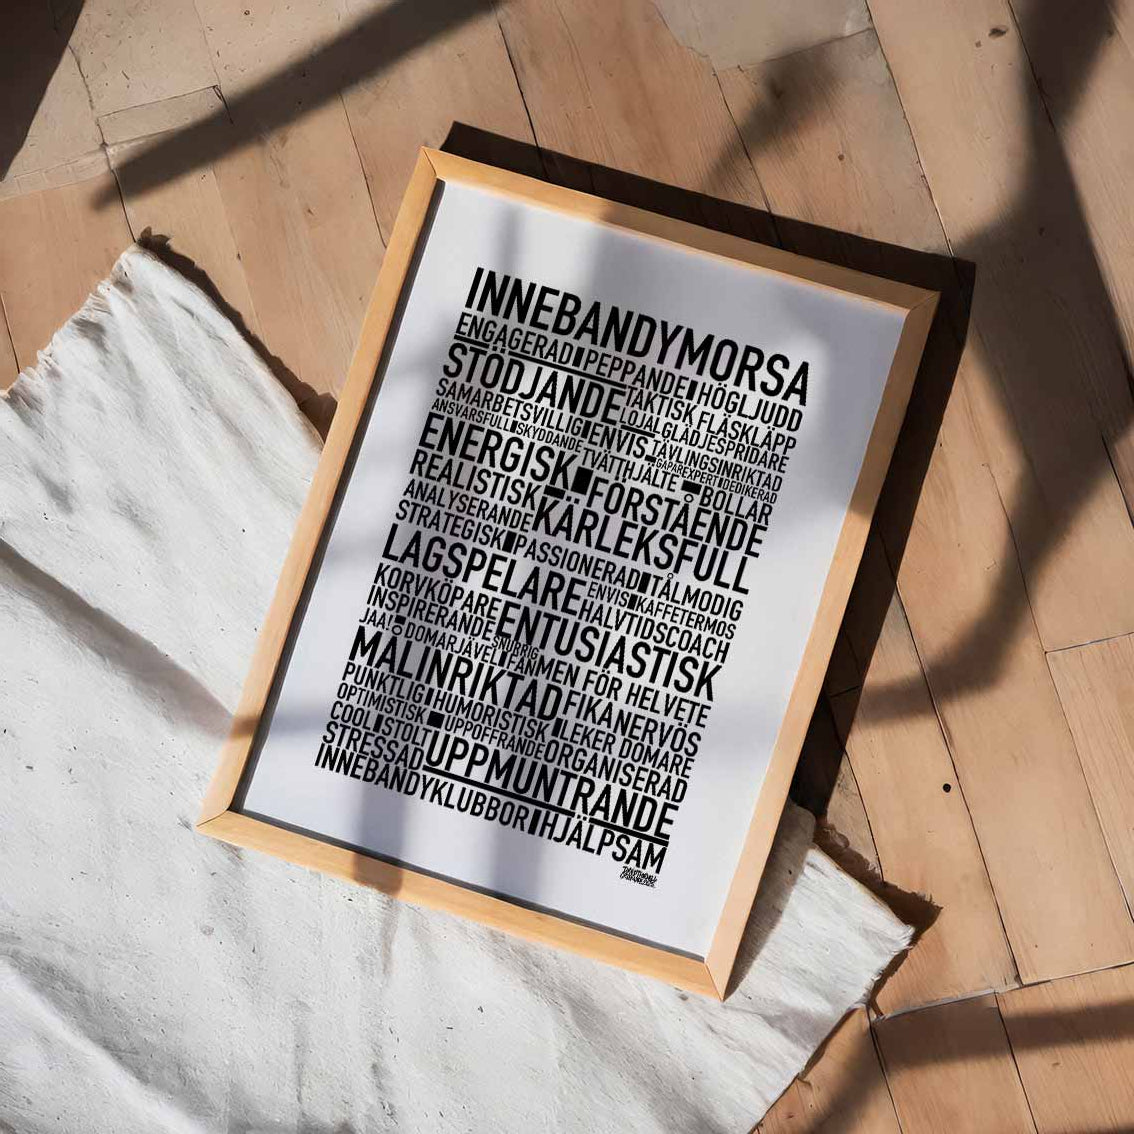 INNEBANDYMORSA
ENGAGERAD PEPPANDE HÖGLJUDD
STÖDJANDE TAKTISK FLÄSKLÄPP
LOJAL GLÄDJESPRIDARE
SAMARBETSVILLIG ENVIS TÄVLINGSINRIKTAD
ANSVARSFULL SKYDDANDE TVÄTTHJÄLTE GAPAREXPERT DEDIKERAD
BOLLAR
ENERGISK FÖRSTÅENDE
REALISTISK KÄRLEKSFULL
ANALYSERANDE
STRATEGISK PASSIONERAD TÅLMODIG
LAGSPELARE ENVIS KAFFETERMOS
HALVTIDSCOACH
KORVKÖPARE ENTUSIASTISK
INSPIRERANDE SNURRIG
JAA! DOMARJÄVEL FANMEN FÖR HELVETE
MÅLINRIKTAD FIKA NERVÖS
PUNKTLIG HUMORISTISK LEKER DOMARE
OPTIMISTISK UPPOFFRANDE ORGANISERAD
COOL STOLT
STRESSAD UPPMUNTRANDE
INNEBANDYKLUBBOR HJÄLPSAM